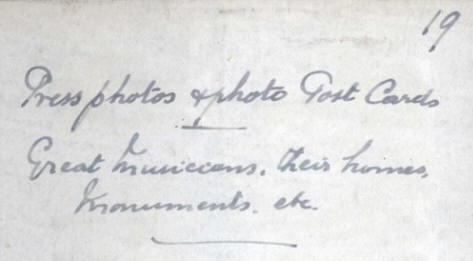 19
Press photos & photo Post Cards
Great Musicians, their homes,
Monuments. etc.